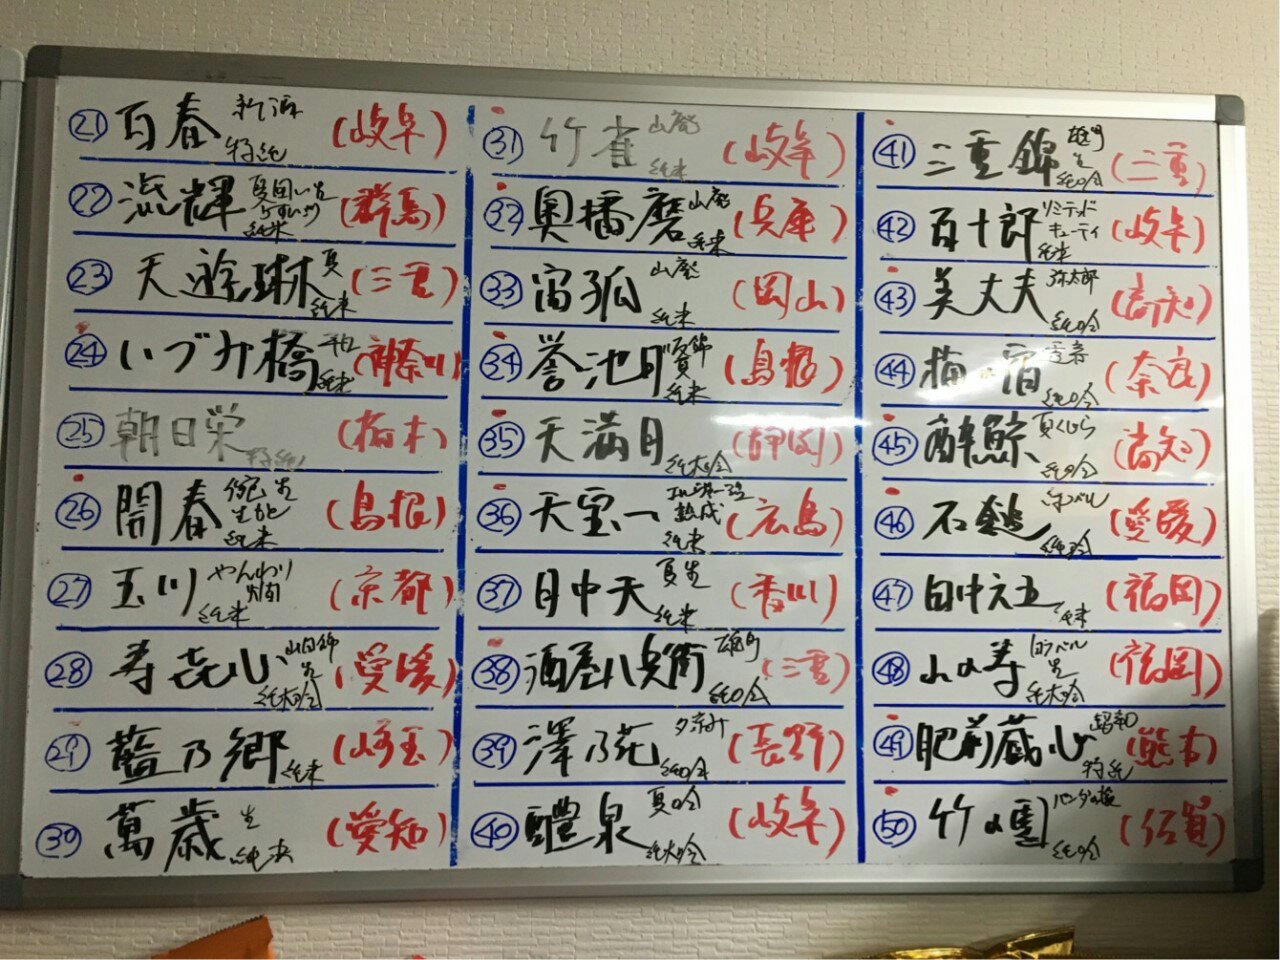 ㉑ 百春 新酒 特純 (岐阜)
㉒ 流輝 夏囲い生 純米 (群馬)
㉓ 天遊琳 夏 純米 (三重)
㉔ いづみ橋 純米 (神奈川)
㉕ 朝日栄 特純 (栃木)
㉖ 開春 俺 生 純米 (島根)
㉗ 玉川 やんわり 燗 純米 (京都)
㉘ 寿喜心 山田錦 生 純大吟 (愛媛)
㉙ 藍乃郷 純米 (埼玉)
㉚ 萬歳 生 純米 (愛知)
㉛ 竹雀 山廃 純米 (岐阜)
㉜ 奥播磨 山廃 純米 (兵庫)
㉝ 宙狐 山廃 純米 (岡山)
㉞ 誉池月 改良錦 純米 (島根)
㉟ 天満月 純大吟 (静岡)
㊱ 天宝一 熟成 純米 (広島)
㊲ 日中天 夏生 純米 (香川)
㊳ 酒屋八兵衛 雄町 純吟 (三重)
㊴ 澤乃花 夕涼み 純吟 (長野)
㊵ 醴泉 夏吟 純大吟 (岐阜)
㊶ 三重錦 雄町 生 純吟 (三重)
㊷ 百十郎 リミテッド キューティ 純米 (岐阜)
㊸ 美丈夫 弥太郎 純吟 (高知)
㊹ 梅の宿 純吟 (奈良)
㊺ 酔鯨 夏くじら 純吟 (高知)
㊻ 石鎚 緑ラベル 純吟 (愛媛)
㊼ 田中六五 純米 (福岡)
㊽ 山の寿 白ラベル 生 純大吟 (福岡)
㊾ 肥前蔵心 昭和 特純 (熊本)
㊿ 竹の園 パンダの楼 純吟 (佐賀)